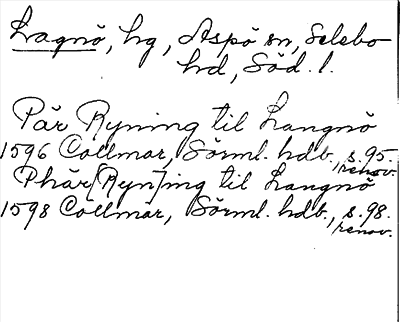 Lagnö, hg, Aspö sn, Selebo
hd, Söd. l.
Pär Ryning til Langnö
1596 Cöllmar, Sörml. hdb., s. 95.
renov.
Phär[Ryn]ing til Langnö
1598 Cöllmar, Sörml. hdb., s. 98.
renov.